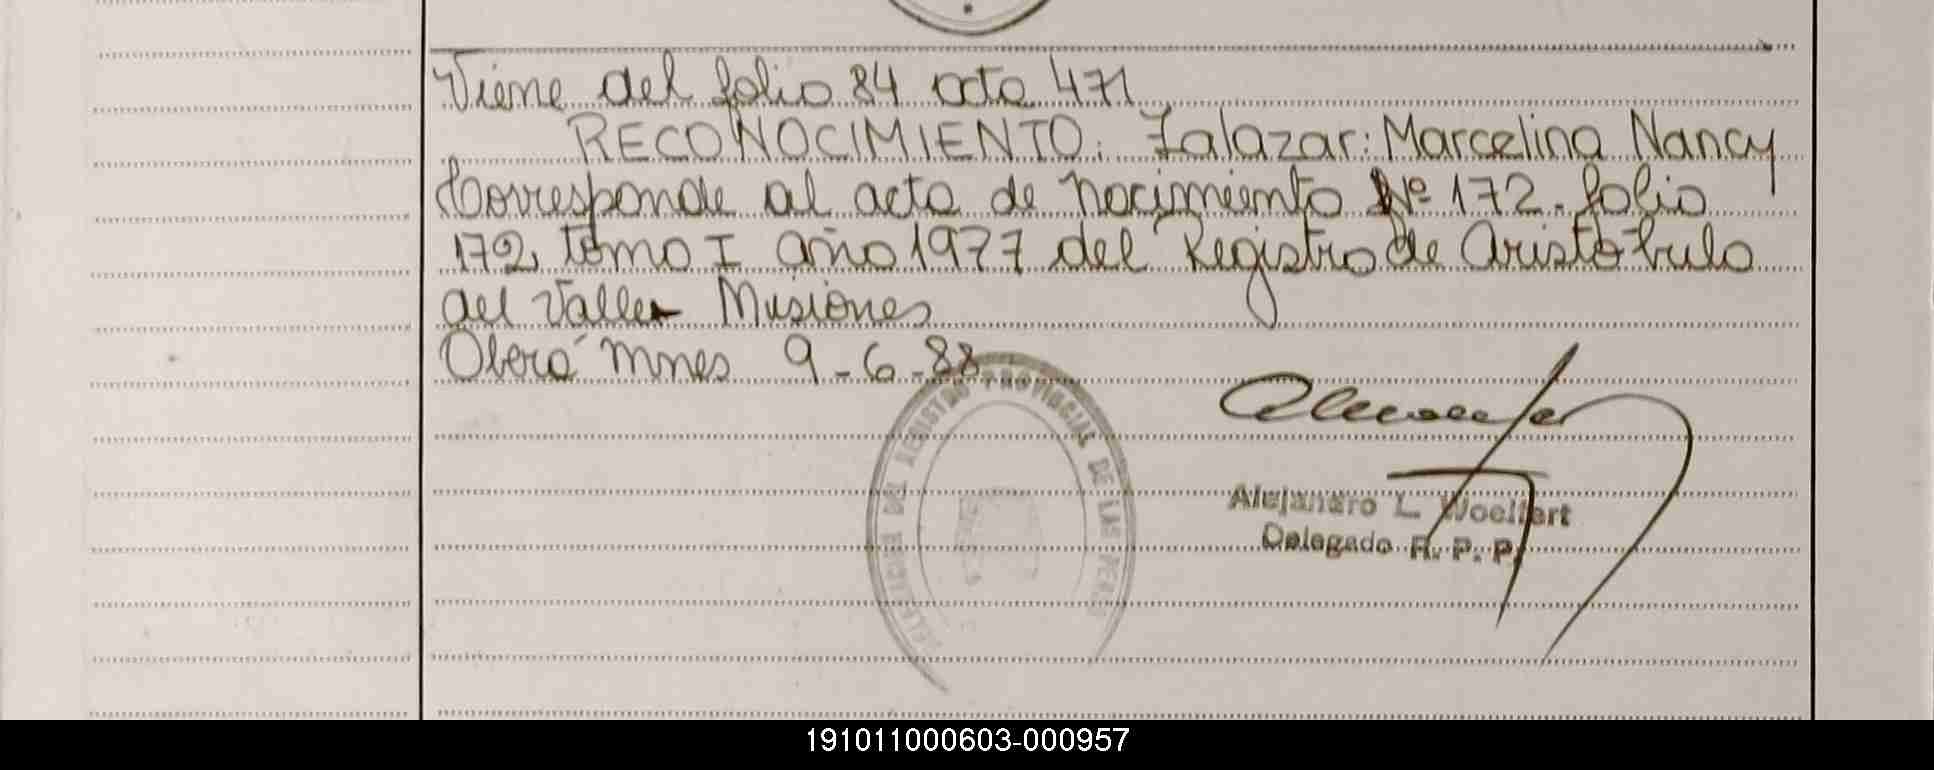 Viene del folio 84 acta 471
RECONOCIMIENTO: Zalazar: Marcelina Nancy
Corresponde al acta de nacimiento Nº 172. folio
172, tomo I año 1977 del Registro de Aristóbulo
del Valle Misiones
Oberá Mnes 9-6-88
DEL REGISTRO PROVINCIAL DE LAS PERS
Alejandro L. Woelfert
Delegado R. P. P.
191011000603-000957